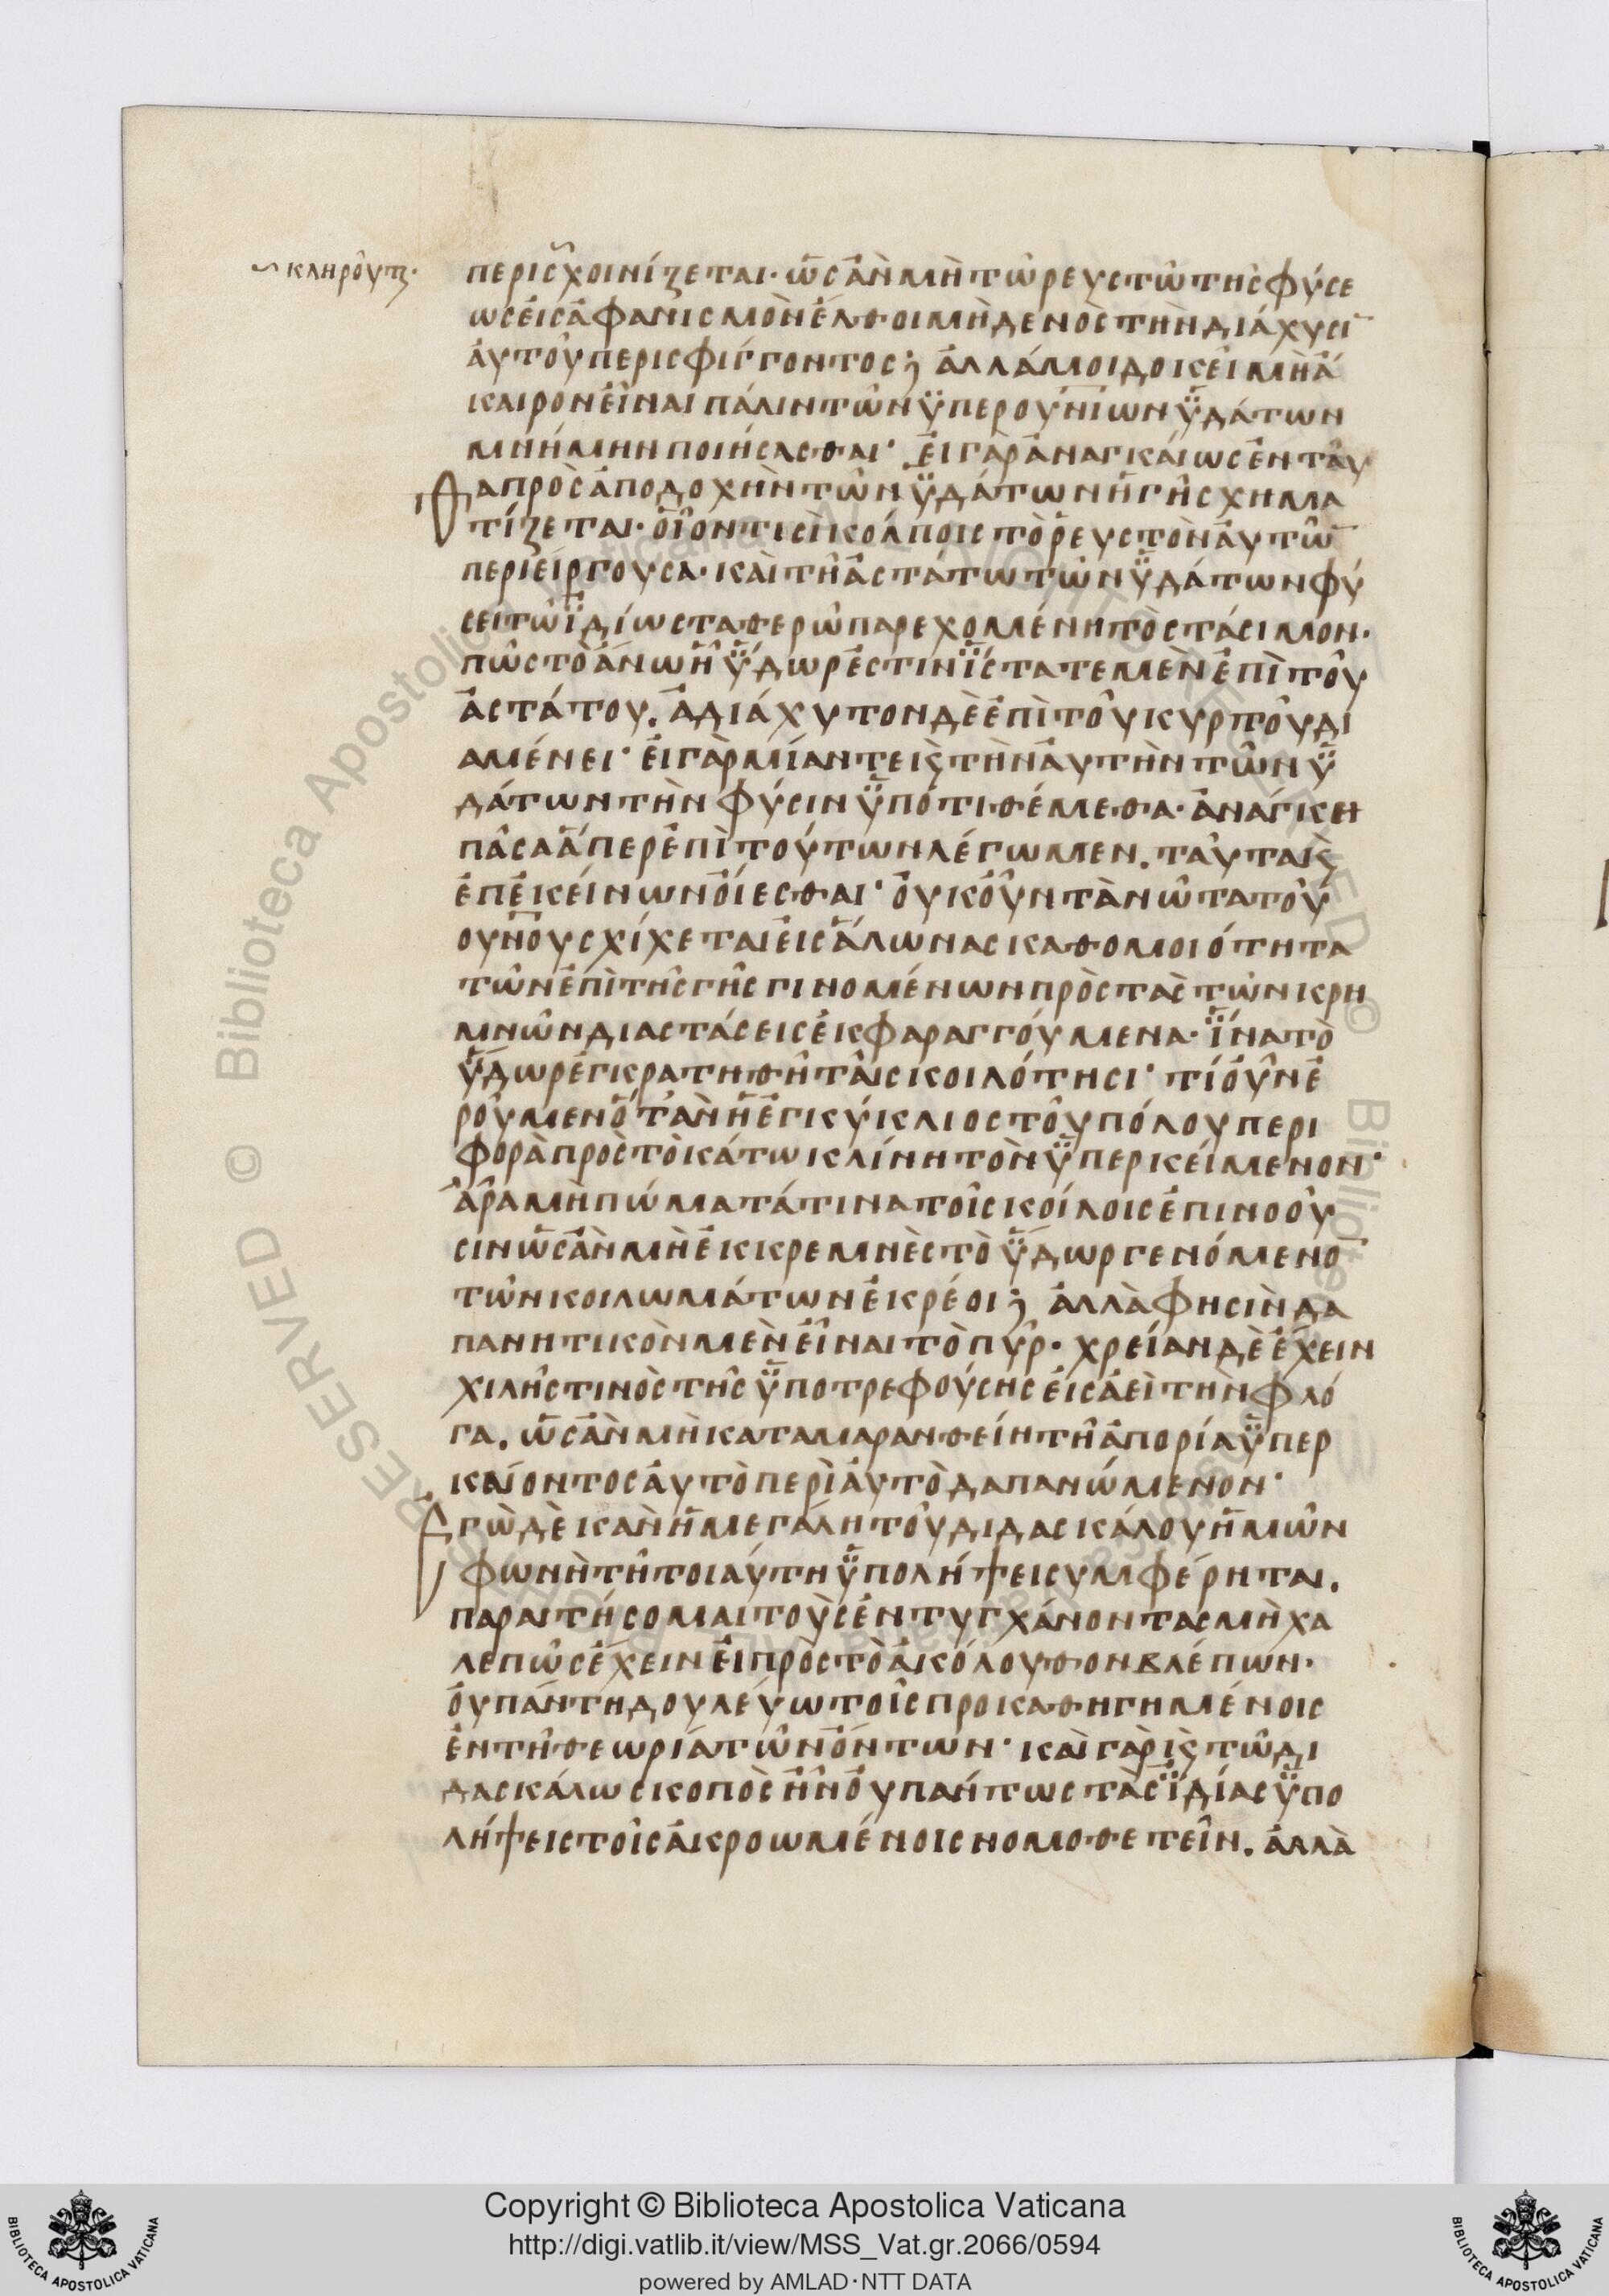 κληροῦται·
περισχοινίζεται· ὡς ἂν μὴ τῶ ρευστῶ τῆς φύσε
ως εἰς ἀφανισμὸν ἔλθοι μηδενὸς τὴν διάχυσῑ
αὐτοῦ περισφίγγοντος; ἀλλά μοι δοκεῖ μὴ ἄ
καιρον εἶναι πάλιν τῶν ϋπερουνίων ϋδάτων
μνήμην ποιήσασθαι· εἰ γὰρ ἀναγκαίως ἐνταῦ
θα πρὸς ἀποδοχὴν τῶν ϋδάτων ἡ γῆ σχημα
τίζεται· οἷόν τισι κόλποις τὸ ρευστὸν αὐτῶ̄
περιείργουσα· καὶ τῆ ἀστάτω τῶν ϋδάτων φύ
σει τῶ ϊδίω σταθερῶ παρεχομένη τὸ στάσιμον·
πῶς τὸ ἄνω ἢ ϋδωρ ἐστιν ϊσταται μὲν ἐπὶ τοῦ
ἀστάτου. ἀδιάχυτον δὲ ἐπὶ τοῦ κυρτοῦ δι
αμένει· εἰ γὰρ μίαν τε ϗ τὴν αὐτὴν τῶν ϋ
δάτων τὴν φύσιν ϋποτιθέμεθα· ἀνάγκη
πᾶσα ἅπερ ἐπὶ τούτων λέγωμεν. ταῦτα ϗ
ἐπ ἐκείνων οἴεσθαι· οὐκοῦν τὰ νῶτα τοῦ
ουνοῦ σχίχεται εἰς ἄλωνας καθομοιότητα
τῶν ἐπὶ τῆς γῆς γινομένων πρὸς τὰς τῶν κρη
μνῶν διαστάσεις ἐκφαραγγούμενα· ϊνα τὸ
ϋδωρ ἐγκρατηθῆ ταῖς κοιλότησι· τί οὖν ἐ
ροῦμεν ὅτ ἂν ἡ ἐγκύκλιος τοῦ πόλου περι
φορὰ πρὸς τὸ κάτω κλίνη τὸν ϋπερκείμενον·
ἄρα μὴ πώματά τινα τοῖς κοίλοις ἐπινοοῦ
σιν ὡς ἂν μὴ ἐκκρεμνὲς τὸ ϋδωρ γενόμενο̄
τῶν κοιλωμάτων ἐκρέοι; ἀλλὰ φησὶν δα
πανητικὸν μὲν εἶναι τὸ πῦρ· χρείαν δὲ ἔχειν
χιλῆς τινὸς τῆς ϋποτρεφούσης εἰς ἀεὶ τὴν φλό
γα. ὡς ἂν μὴ καταμαρανθείη τῆ ἀπορία ϋπερ
καίοντος αὐτὸ περὶ αὐτὸ δαπανώμενον·
Ἐγὼ δὲ κἂν ἡ μεγάλη τοῦ διδασκάλου ἡμῶν
φωνὴ τῆ τοιαύτη ϋπολήψει συμφέρηται.
παραιτήσομαι τοὺς ἐντυγχάνοντας μὴ χα
λεπῶς ἔχειν εἰ πρὸς τὸ ἀκόλουθον βλέπων·
οὐ πάντη δουλεύω τοῖς προκαθηγημένοις
ἐν τῆ θεωρία τῶν ὄντων· καὶ γὰρ ϗ τῶ δι
δασκάλω σκοπὸς ἦν οὐ πάντως τὰς ϊδίας ϋπο
λήψεις τοῖς ἀκροωμένοις νομοθετεῖν. ἀλλὰ
Copyright © Biblioteca Apostolica Vaticana
http://digi.vatlib.it/view/MSS_Vat.gr.2066/0594
powered by AMLAD·NTT DATA